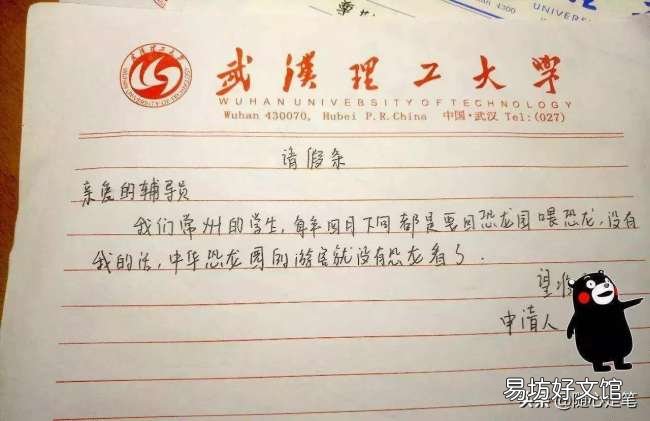 UNIVERSI
武汉理工大学
WUHAN UNIVERSITY OF TECHNOLOGY
Wuhan 430070, Hubei P.R.China 中国·武汉 Tel:(027)
请假条
亲爱的辅导员
我们常州的学生,每年四月下旬都是要回恐龙园喂恐龙,没有
我的话,中华恐龙园的游客就没有恐龙看了.
望准
申请人
易坊好文馆
头条 @随心走笔